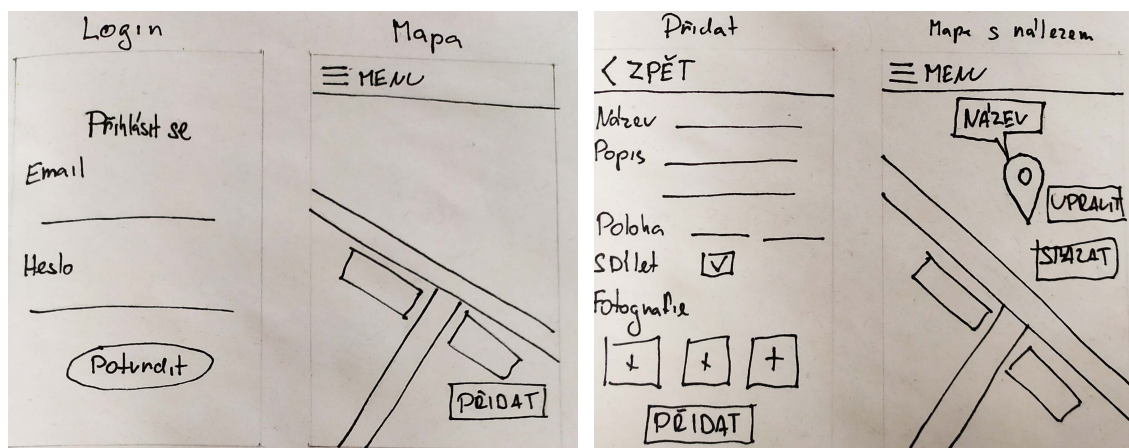 Login
Přihlásit se
Email
Heslo
Potvrdit
Mapa
MENU
PŘIDAT
Přidat
< ZPĚT
Název
Popis
Poloha
SDílet
Fotografie
+ + +
PŘIDAT
Mapa s nálezem
MENU
NÁZEV
UPRAVIT
SMAZAT